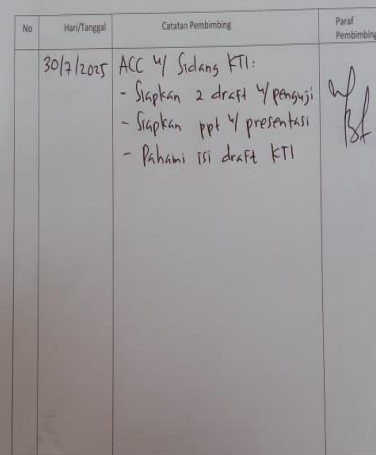 No Hari/Tanggal Catatan Pembimbing Paraf Pembimbing
30/7/2025 ACC u/ Sidang KTI:
- Siapkan 2 draft u/ penguji
- Siapkan ppt u/ presentasi
- Pahami isi draft KTI